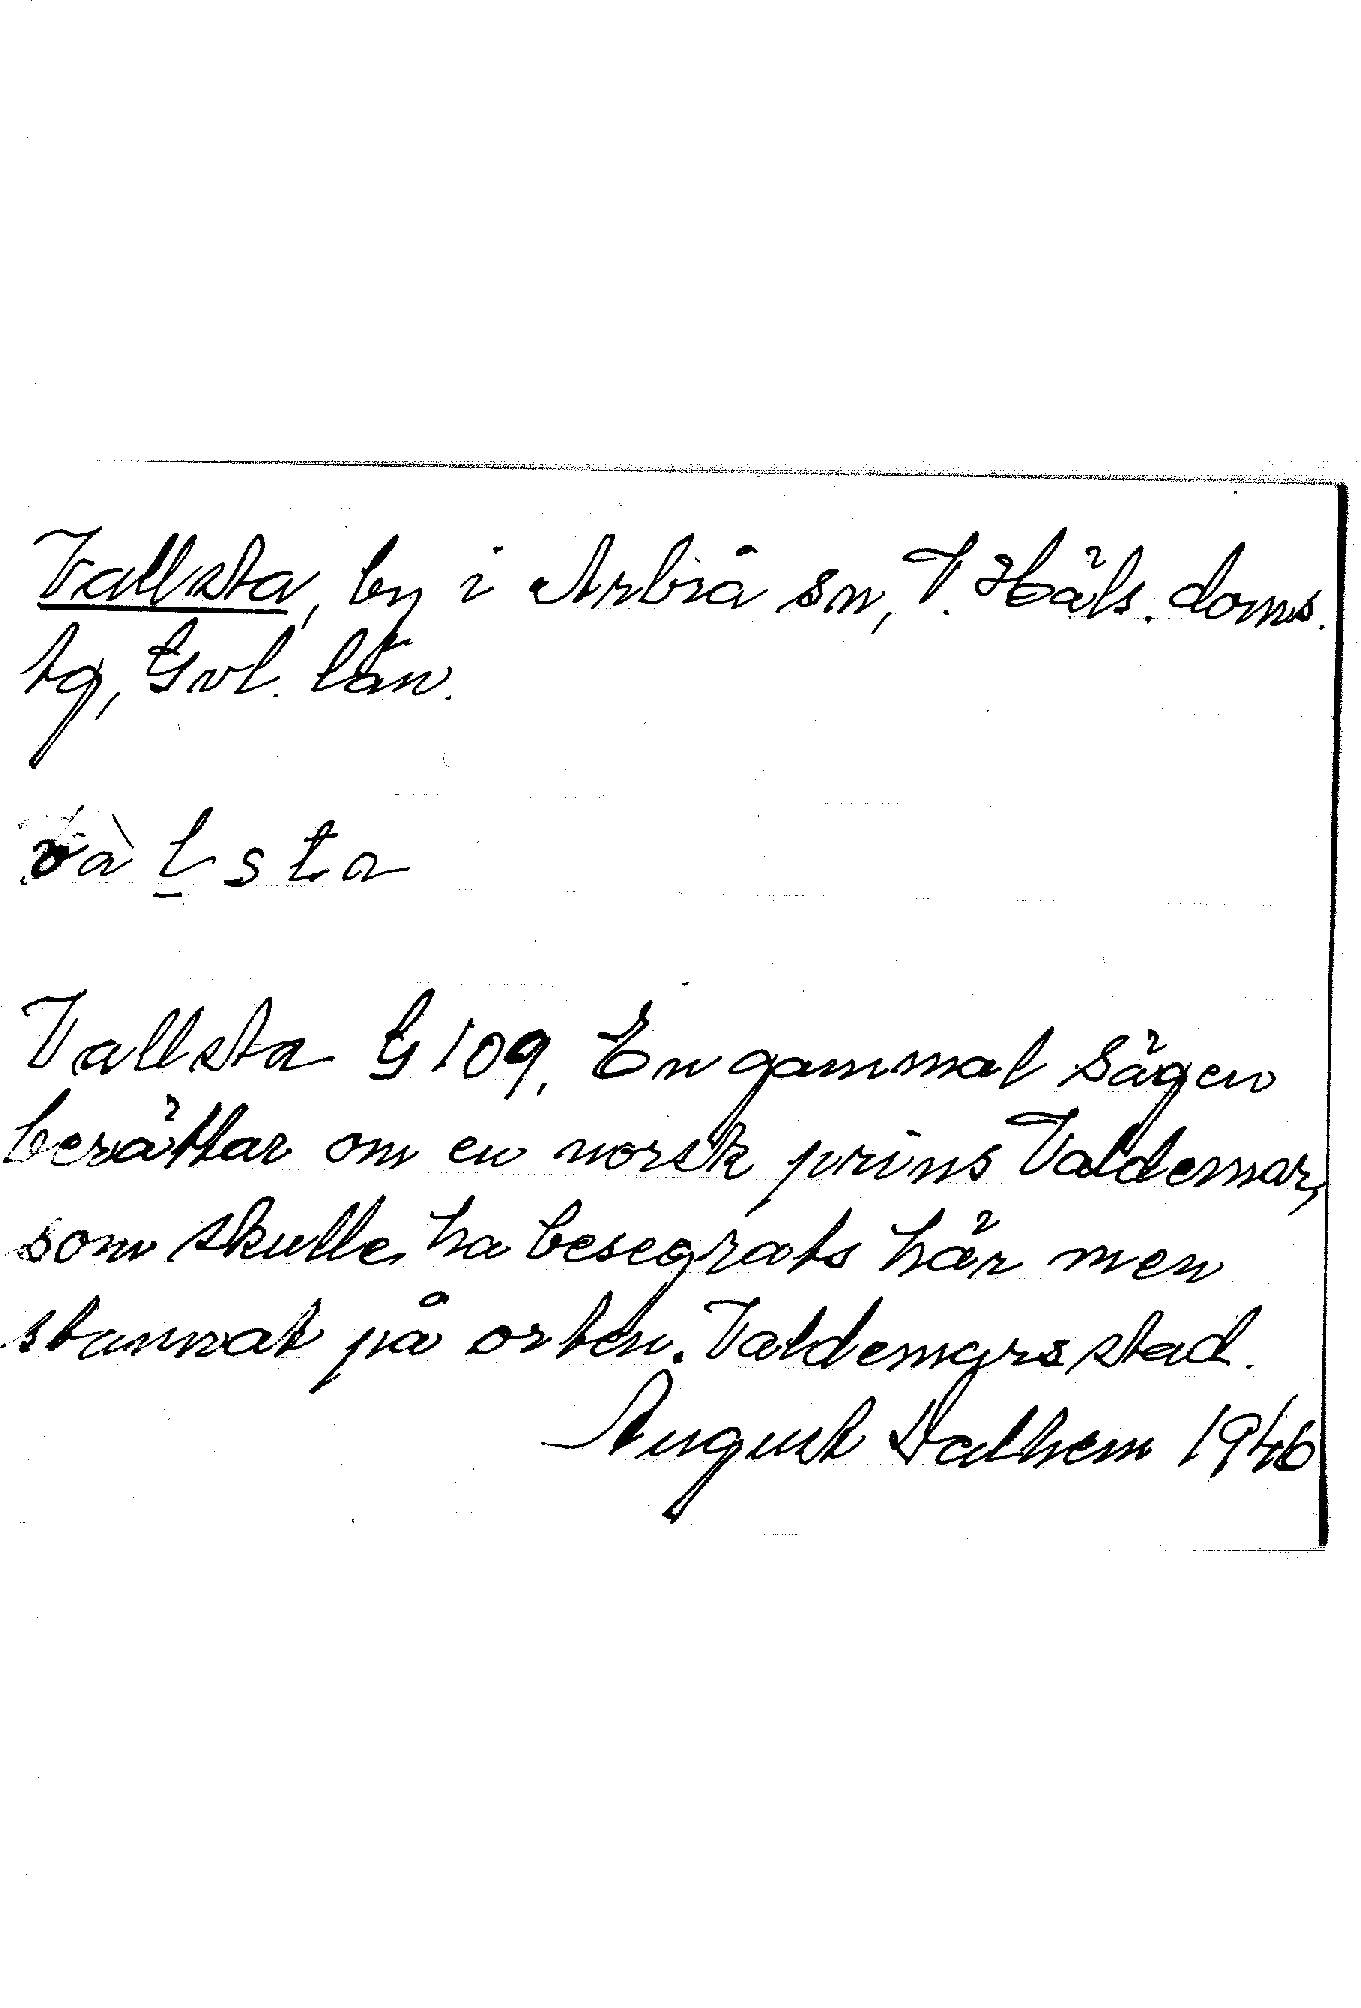 Vallsta, by i Arbrå sn, V. Häls. doms.
tg, Gvl. län.
và l̠ s t a
Vallsta G 109. En gammal sägen
berättar om en norsk prins Valdemar,
som skulle ha besegrats här men
stannat på orten. Valdemarsstad.
August Dalhem 1946